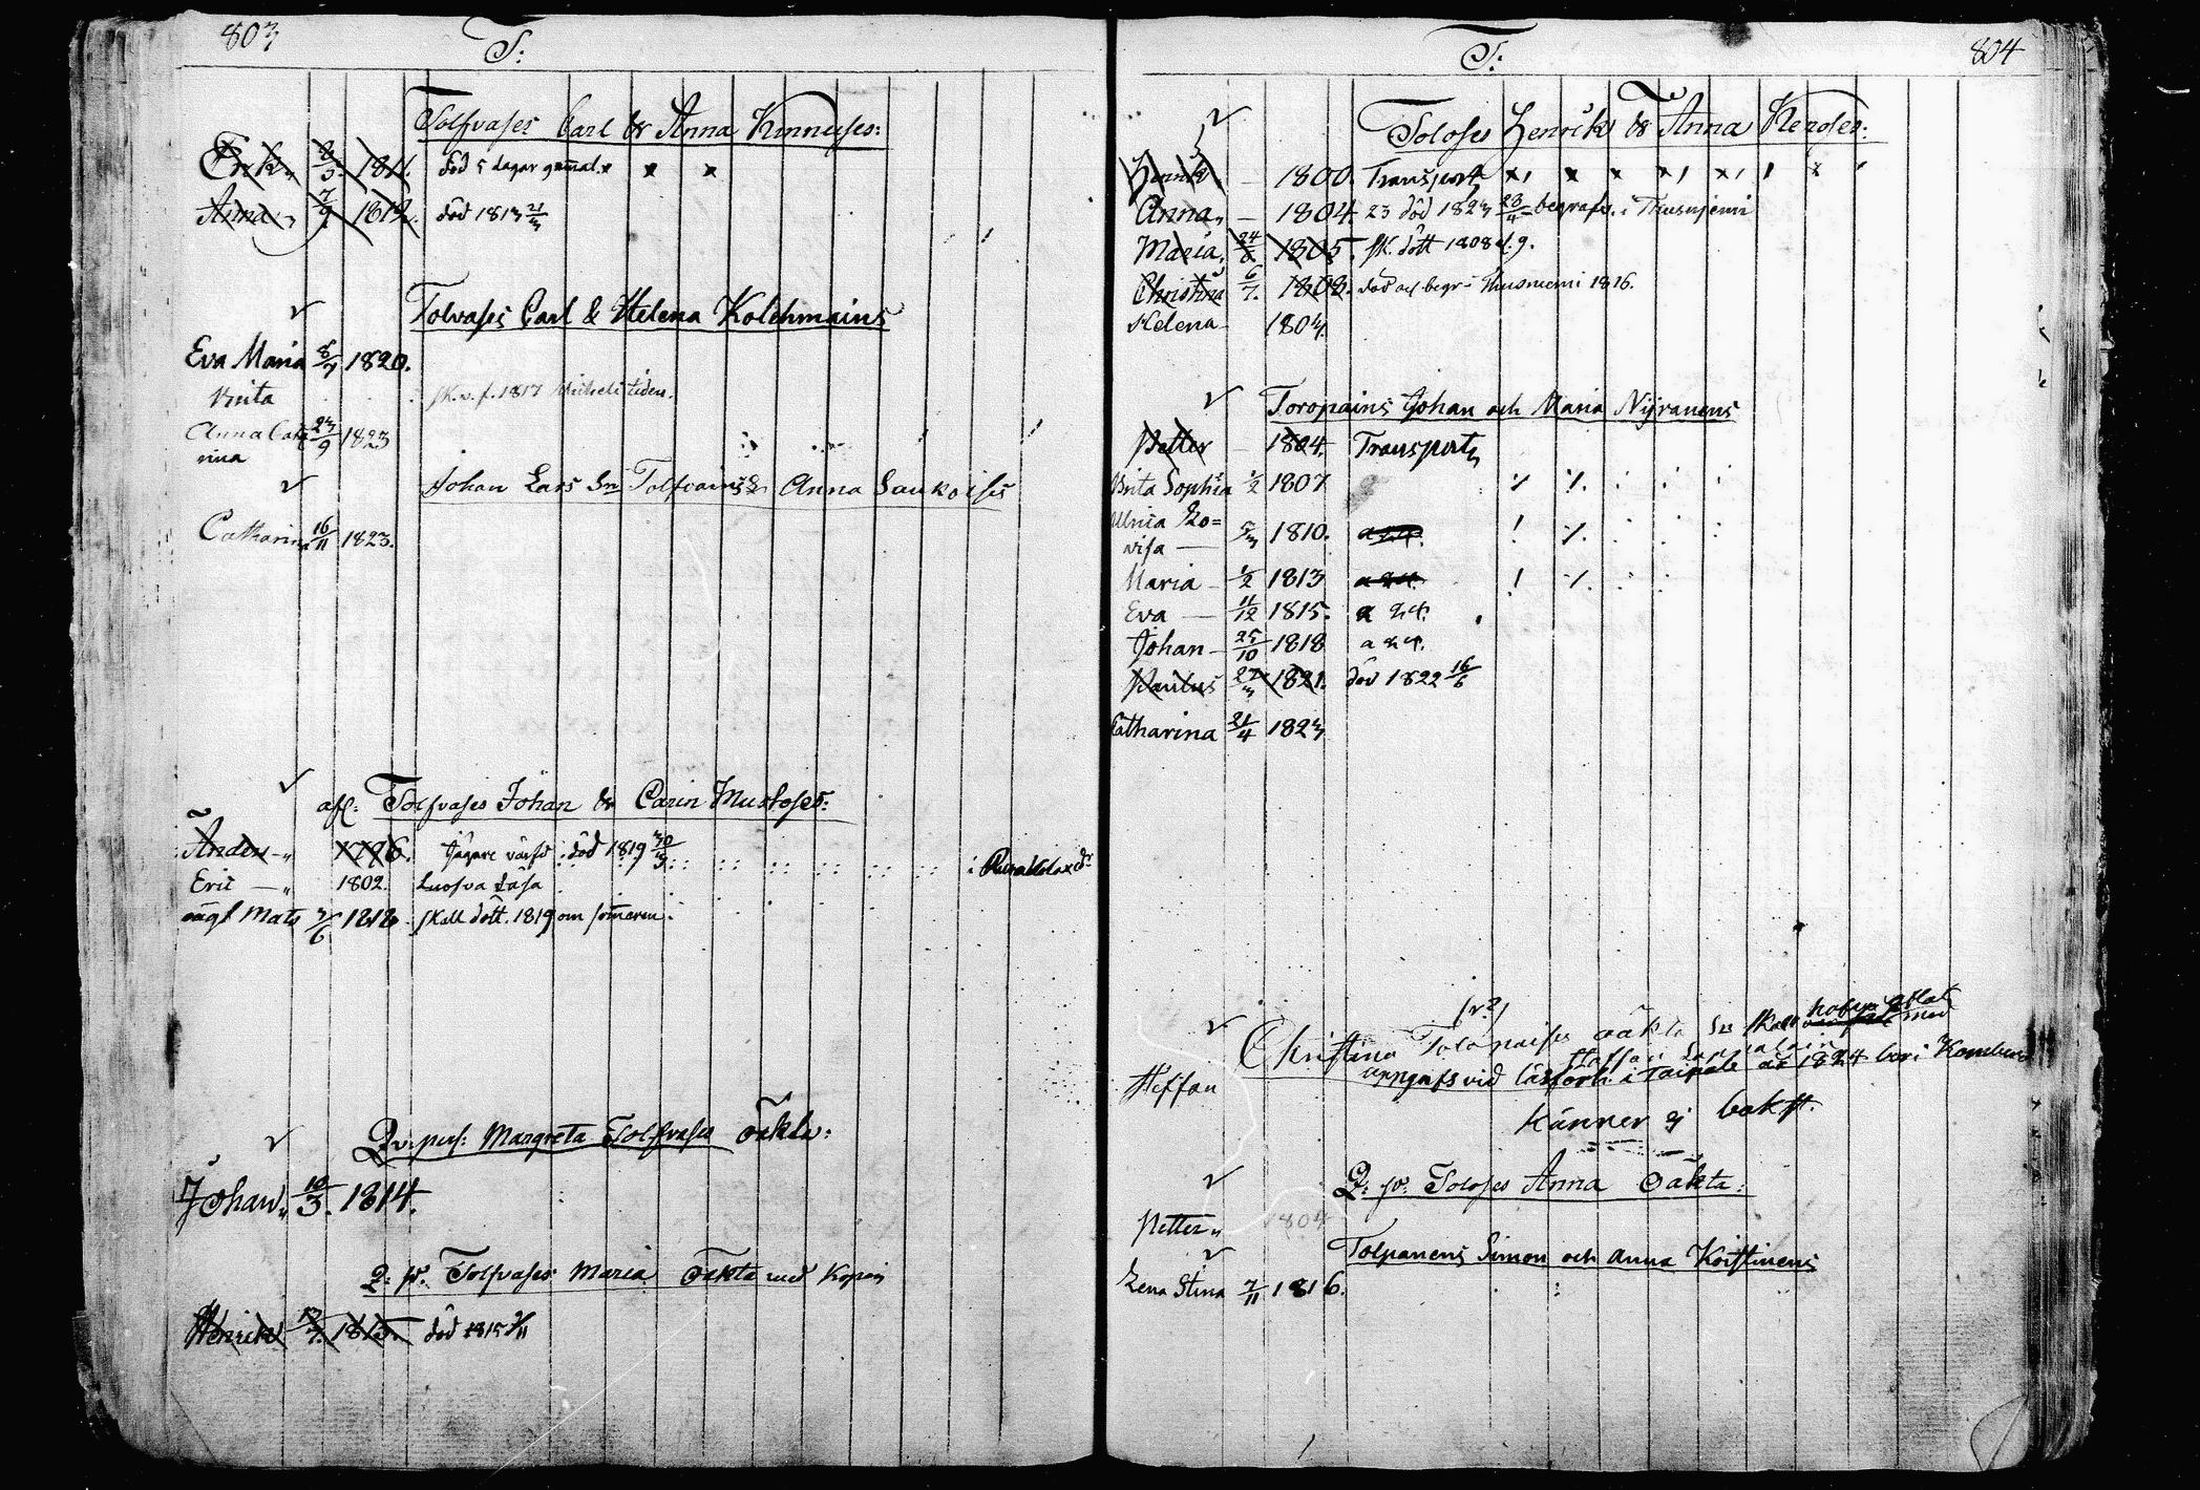 803
T:
Tolfvases Carl & Anna Kinnuses:
Erik 8/3 1811. död 5 dagar gamal. x x x
Anna 7/9 1812. död 1813 21/3
Tolvases Carl & Helena Kolehmains
Eva Maria 8/7 1820.
Brita sk. v. f. 1817 Mikaeli tiden.
Anna Catha 23/9 1823
rina
Johan Lars Sn Tolfvains & Anna Saukoises
Catharina 16/11 1823.
afl: Tolfvases Johan & Carin Mustoses:
Anders 1796. Jägare värfd död 1819 30/3
Eric 1802. Luosva Läsa
oägt Mats 3/6 1818 skall dött. 1819 om somaren.
Qv: pers: Margreta Tolfvases Oäkta:
Johan 10/3. 1814.
Q: p: Tolfvases Maria Oäkta med Kopoin
Henrik 13/7. 1815. död 1815 9/11
804
T:
Toloses Henrik & Anna Kerdes:
Henrik 1800. Transport
Anna 1804 23 död 1823 23/4 begrafv. i Thusnjemi
Maria 24/8 1805. sk. dött 1808 el. 9.
Christina 6/7. 1808. död och begr. i Thusniemi 1816.
Helena 1803.
Toropains Johan och Maria Nyranens
Petter 1804. Transport
Brita Sophia 1/2 1807
Ulrica Lo=
visa 5/3 1810. a 2 4.
Maria 1/2 1813 a 2 4.
Eva 11/12 1815. a 2 4.
Johan 25/10 1818 a 2 4.
Paulus 27/3 1821. död 1822 16/6
Catharina 21/4 1823
(v?)
Christina Tolonaises oäkta Sn skall hafva aflat med
Staffan
uppgafs vid läsförh. i Taipale år 1824 bor i
Steffan
känner ej bokst.
Q: p: Toloses Anna Oäkta:
Petter 1804
Tolpanens Simon och Anna Koistinens
Lena Stina 7/11 1816.